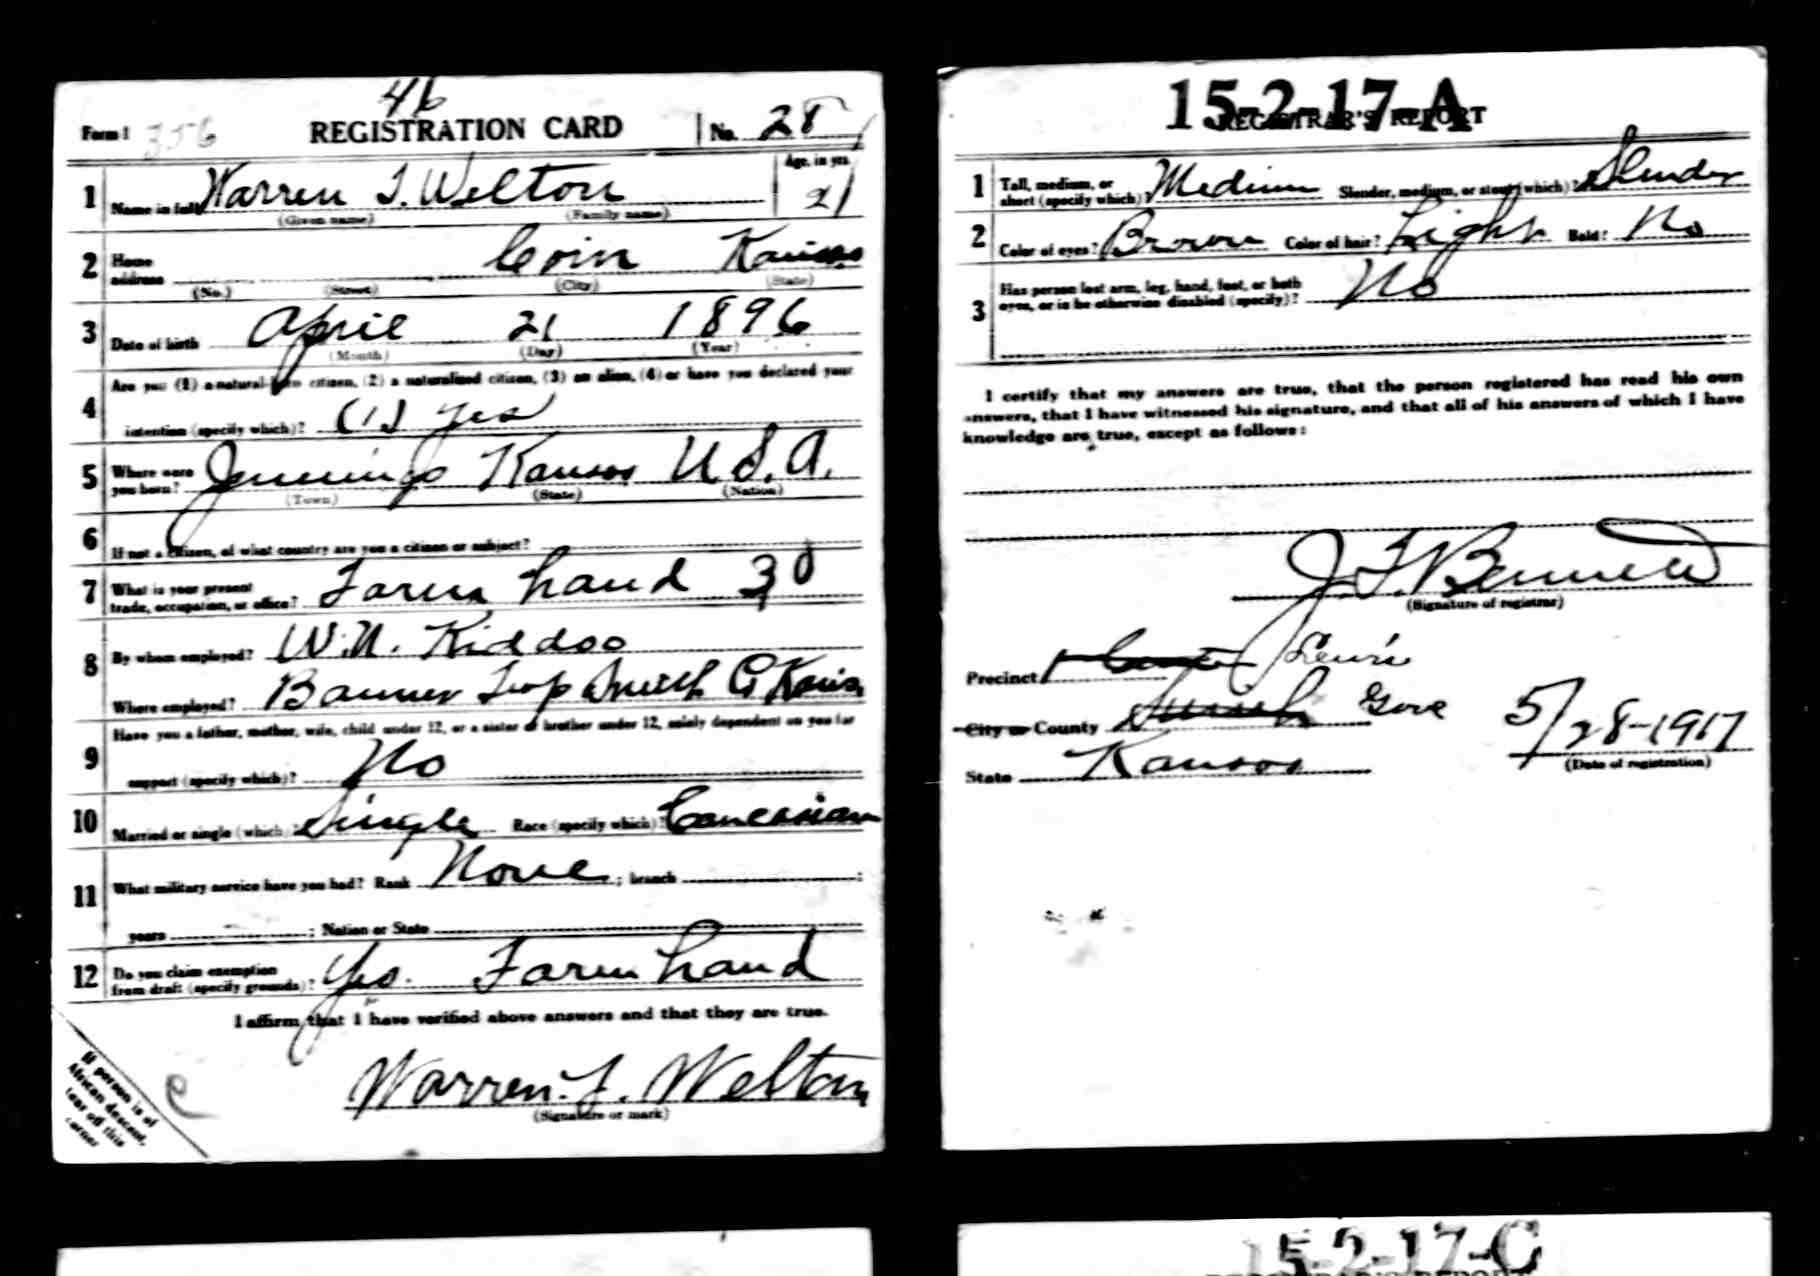 46
Form 1 356 REGISTRATION CARD No. 28
1 Name in full Warren J. Welton Age, in yrs. 21
(Given name) (Family name)
2 Home address Coin Kansas
(No.) (Street) (City) (State)
3 Date of birth April 21 1896
(Month) (Day) (Year)
4 Are you (1) a natural-born citizen, (2) a naturalized citizen, (3) an alien, (4) or have you declared your
intention (specify which)? (1) Yes
5 Where were you born? Jennings Kansas U.S.A.
(Town) (State) (Nation)
6 If not a citizen, of what country are you a citizen or subject?
7 What is your present trade, occupation, or office? Farm hand 30
8 By whom employed? W.N. Kiddoo
Where employed? Banner Twp Smith Co Kans
9 Have you a father, mother, wife, child under 12, or a sister or brother under 12, solely dependent on you for
support (specify which)? No
10 Married or single (which)? Single Race (specify which)? Caucasian
11 What military service have you had? Rank None ; branch ;
years ; Nation or State
12 Do you claim exemption from draft (specify grounds)? Yes. Farm hand
I affirm that I have verified above answers and that they are true.
Warren J. Welton
(Signature or mark)
If person is of
African descent,
tear off this
corner
15-2-17-A
REGISTRAR'S REPORT
1 Tall, medium, or short (specify which)? Medium Slender, medium, or stout (which)? Slender
2 Color of eyes? Brown Color of hair? Light Bald? No
3 Has person lost arm, leg, hand, foot, or both
eyes, or is he otherwise disabled (specify)? No
I certify that my answers are true, that the person registered has read his own
answers, that I have witnessed his signature, and that all of his answers of which I have
knowledge are true, except as follows:
J. F. Bennett
(Signature of registrar)
Precinct Lewis
City or County Smith Gove 5/28-1917
State Kansas (Date of registration)
15-2-17-C
REGISTRAR'S REPORT